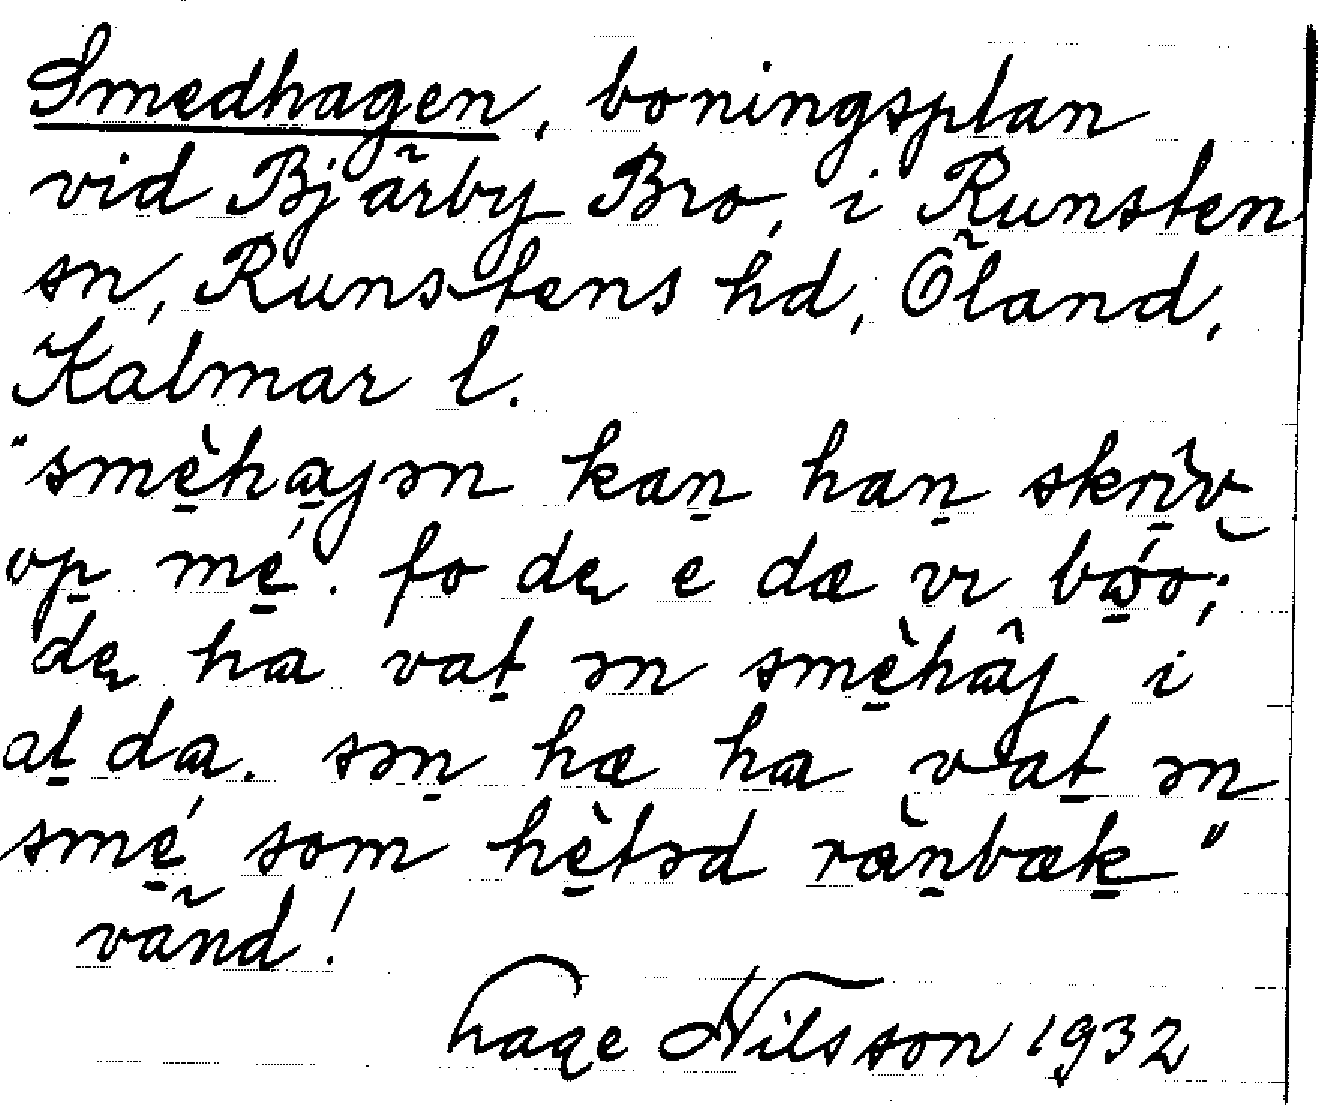 Smedhagen, boningsplan
vid Bjärby Bro, i Runsten
sn, Runstens hd, Öland,
Kalmar l.
"smèhaɡən kan han skrìv
op mé. fo de e dæ vɪ bóo;
de ha vat ən smèhâɡ i
at da. sən hæ ha vat ən
smé som hètəd rànbæk"
vänd!
Hage Nilsson 1932